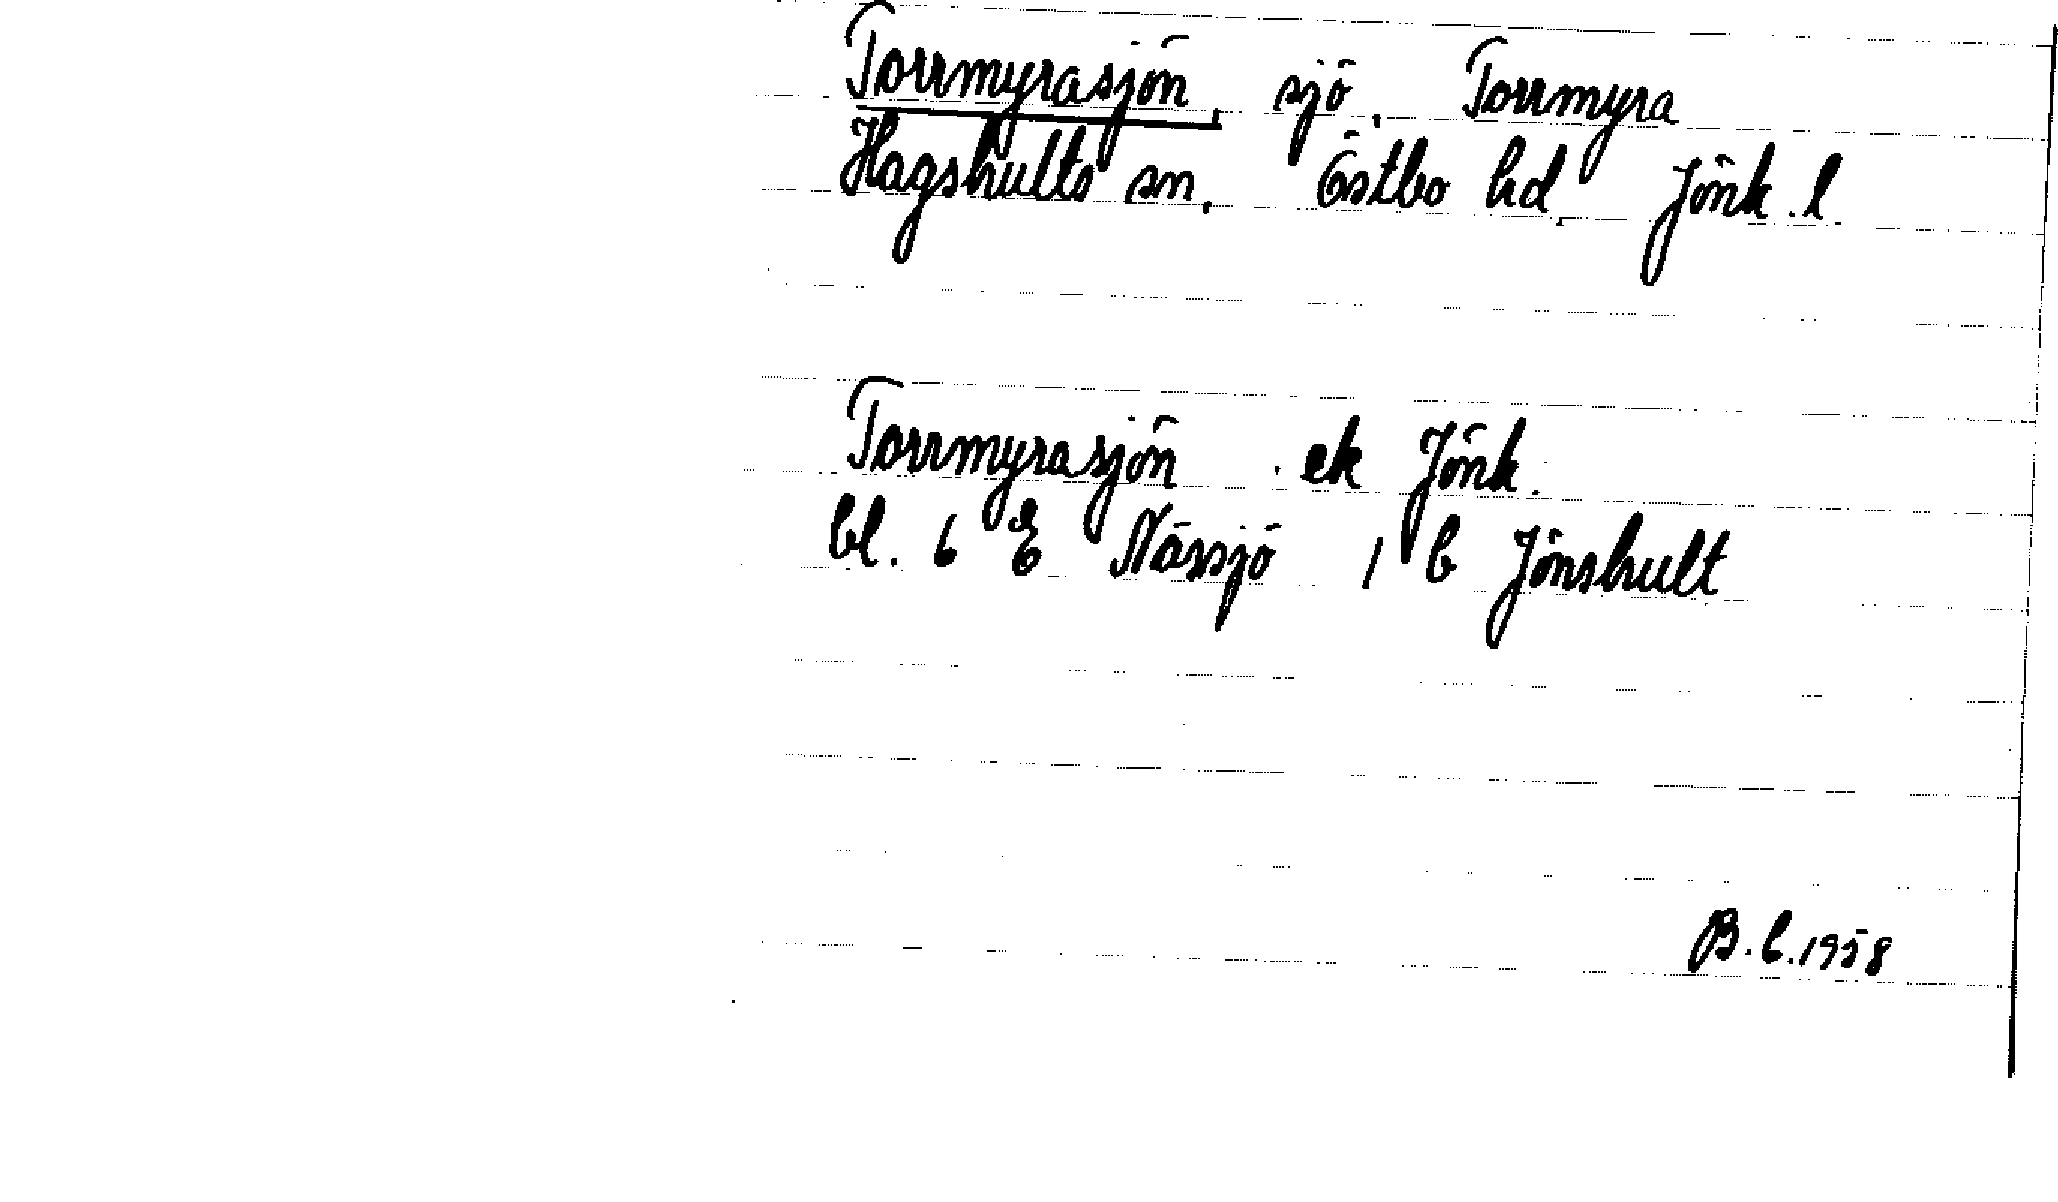 Torrmyrasjön, sjö, Torrmyra
Hagshults sn, Östbo hd, Jönk. l.
Torrmyrasjön, ek Jönk.
bl. 6 E Nässjö 1 b Jönshult
B.C. 1958